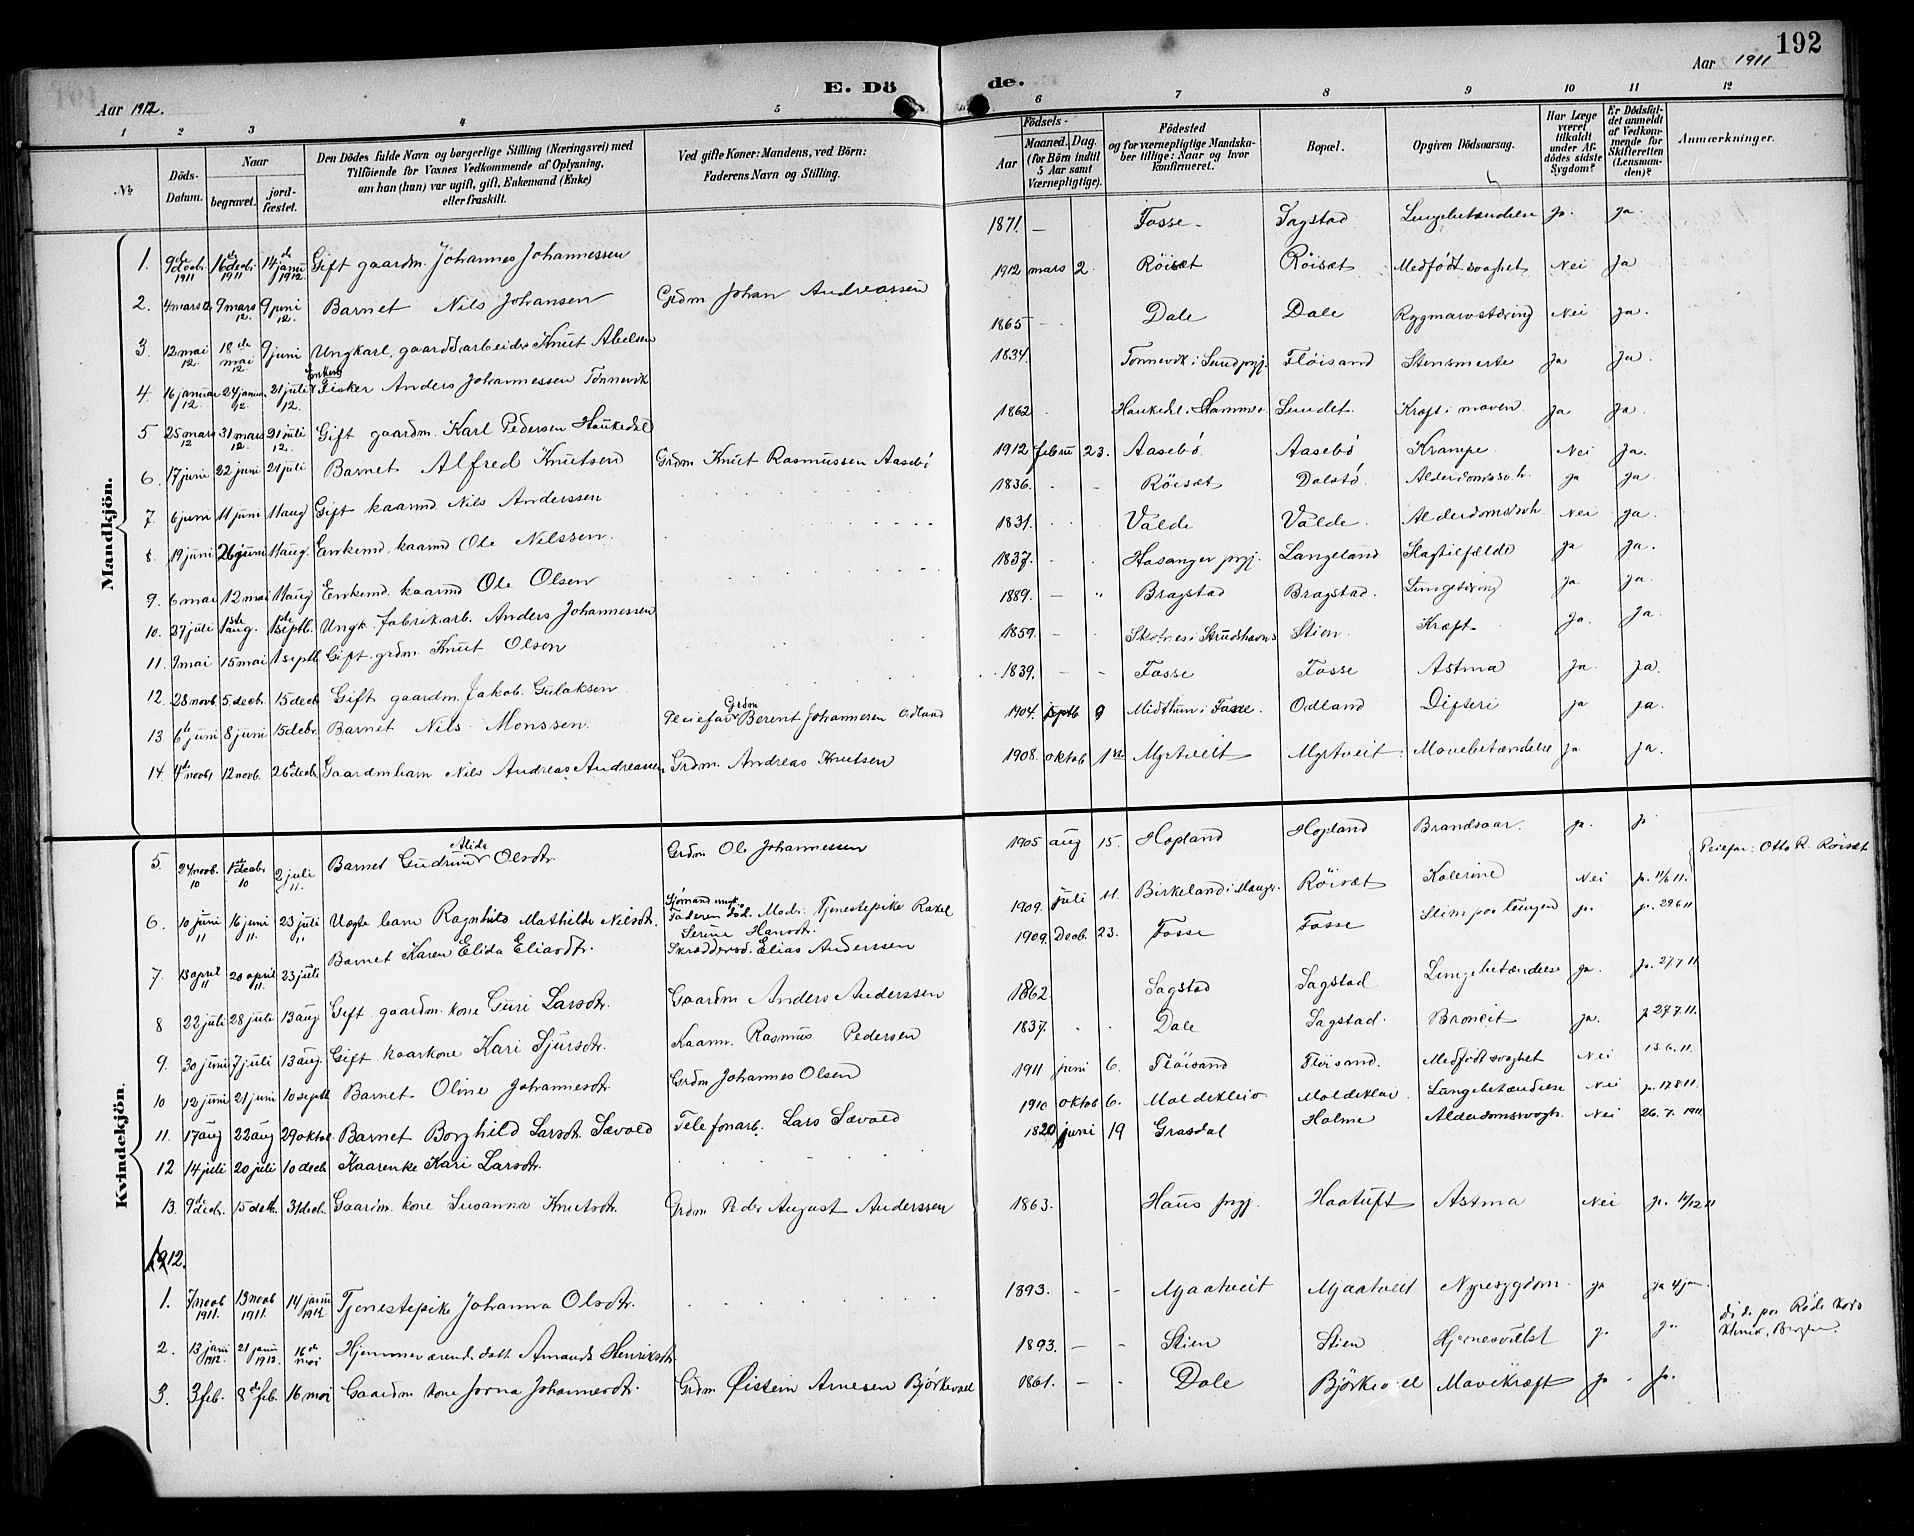 192
Aar 1912.
E. Döde.
Aar 1911
1 2 3 4 5 6 7 8 9 10 11 12
No
Döds-Datum.
Naar
begravet.
jord-fæstet.
Den Dödes fulde Navn og borgerlige Stilling (Næringsvei) med Tilföiende for Voxnes Vedkommende af Oplysning, om han (hun) var ugift, gift, Enkemand (Enke) eller fraskilt.
Ved gifte Koner: Mandens, ved Börn: Faderens Navn og Stilling.
Födsels-
Aar
Maaned. Dag.
(for Börn indtil 5 Aar samt Værnepligtige).
Födested og for værnepligtige Mandskaber tillige: Naar og hvor konfirmeret.
Bopæl.
Opgiven Dödsaarsag.
Har Læge været tilkaldt under Afdödes sidste Sygdom?
Er Dödsfaldet anmeldt af Vedkommende for Skifteretten (Lensmanden)?
Anmærkninger.
Mandkjön.
1. 9de decbr 1911 16de decbr 1911 14de janu 1912 Gift gaardm. Johannes Johannessen 1871. — Fosse Sagstad Lungebetændelse ja. ja.
2. 4 mars 12 9 mars 12. 9 juni 12. Barnet Nils Johansen Grdm Johan Andreassen 1912 mars 2. Röisæt Röisæt Medfödt svaghet Nei ja
3. 12 mai 12 18de mai 12 9 juni Ungkarl, gaardsarbeider Knut Abelsen 1865 Dale Dale Rygmarvstæring Nei ja.
4. 16 januar 12. 24 januar 12. 21 juli 12. Enkem Fisker Anders Johannessen Tönnevik 1834. Tonnevik i Sund pgj. Flöisand Stensmerte ja ja.
5 25 mars 12 31 mars 12. 21 juli 12. Gift gaardm. Karl Pedersen Haukedal 1862 Haukedal i Hammer Lundet. Kræft i maven. ja ja.
6. 17 juni 22 juni 21 juli Barnet Alfred Knutsen Grdm Knut Rasmussen Aasebö 1912 febru 23. Aasebö Aasebö Krampe Nei ja.
7. 6 juni 11 juni 11 aug Gift kaarmd Nils Anderssen 1836. Röisæt Dalstö Alderdomssvh. ja ja.
8. 19 juni 26 juni 11 aug. Enkemd. kaarmd Ole Nilssen. 1831. Valde Valde. Alderdomssvh. Nei ja.
9. 6 mai 12 mai 11 aug Enkemd. kaarmd Ole Olsen 1837. Hosanger pgj. Langeland Slagtilfælde ja ja.
10. 27 juli 1ste aug. 1ste septb. Ungk. fabrikarb. Anders Johannessen 1889. Bragstad Bragstad. Lungetæring ja ja.
11. 9 mai 15 mai 1 septb Gift grdm. Knut Olsen 1859. Stien. Kræft ja. ja.
12. 28 novb 5 decb. 15 decb Gift gaardm. Jakob Gulaksen 1839. Fosse Fosse Astma ja. ja.
13. 6te juni 8 juni 15 decbr. Barnet Nils Monssen. Pleiefar Grdm Berent Johannesen Odland 1904. septb 9 Midttun i Fane. Odland Difteri ja ja.
14. 4de novbr 12 novb. 26de decbr Gaardmbarn Nils Andreas Andreassen Grdm. Andreas Knutsen 1908. oktob 1ste Myrtveit Myrtveit. Mavebetændelse ja ja.
Kvindekjön.
5. 24 novb. 10 1ste decbr 10 2 juli 11. Barnet Gudrun Alida Olsdtr. Grdm Ole Johannessen 1905 aug 15. Hopland Hopland Brandsaar. ja. ja
6. 10 juni 11 16 juni 11. 23 juli 11 Uegte barn Ragnhild Mathilde Nilsdtr. Sjömand Moder: Tjenestepike Rakel Serine Hansdtr. 1909. juli 11. Birkeland i Manger Röisæt Kolerine Nei ja. 11/6 11. Pleiefar: Otto R. Röisæt
7. 13 april 11 20 april 11. 23 juli Barnet Karen Elida Eliasdtr. Skræddersv. Elias Anderssen 1909. Decb. 23. Fosse Fosse Slim paa lungen ja. ja. 29 6 11
8 22 juli 28 juli 13 aug Gift gaardm. kone Guri Larsdtr. Gaardm Anders Anderssen 1862. Sagstad Sagstad Lungebetændelse ja. ja. 27 7 11
9. 30 juni 7 juli 13 aug. Gift kaarkone Kari Sjursdtr. Kaarm. Rasmus Pedersen 1837. Dale Sagstad. Bronkit ja. ja 27 7. 11.
10 12 juni 21 juni 10 septb Barnet Oline Johannesdtr. Grdm Johannes Olsen 1911 juni 6. Flöisand Flöisand. Medfödt svaghet Nei 13. 6. 11.
11. 17 aug 22 aug 29 oktob. Barnet Borghild Larsdtr. Sævold Telefonarb. Lars Sævold 1910 oktob 6. Moldekleiv Moldeklei. Lungebetændelse Nei ja. 17 8 11.
12 14 juli 20 juli 10 decb Kaarenke Kari Larsdtr. 1820 juni 19 Grasdal Holme Alderdomssvagh. Nei 26. 7. 1911
13. 9de decbr. 15 decb. 31 decb. Gaardm. kone Susanna Knutsdtr. Grdm Peder August Anderssen 1863. Haus pgj. Haatuft Astma Nei ja. 11/12 11
1912.
1. 7 novb 1911. 13 novb 1911. 14 janu 1912 Tjenestepike Johanna Olsdtr. 1893. Mjaatveit Mjaatveit Nyresygdom. ja ja 4 jan.
2. 13 janu 1912. 21 janu 1912. 16de mai Hjemmeværende datt. Amanda Henriksdtr. 1893. Stien Stien Hjernesvulst ja ja. Död paa Röde Kors Klinik, Bergen.
3. 3 feb. 8de feb. 16 mai Gaardm kone Jorna Johannesdtr. Grdm Øistein Arnesen Björkevoll 1861. Dale Björkevoll Mavekræft ja. ja.